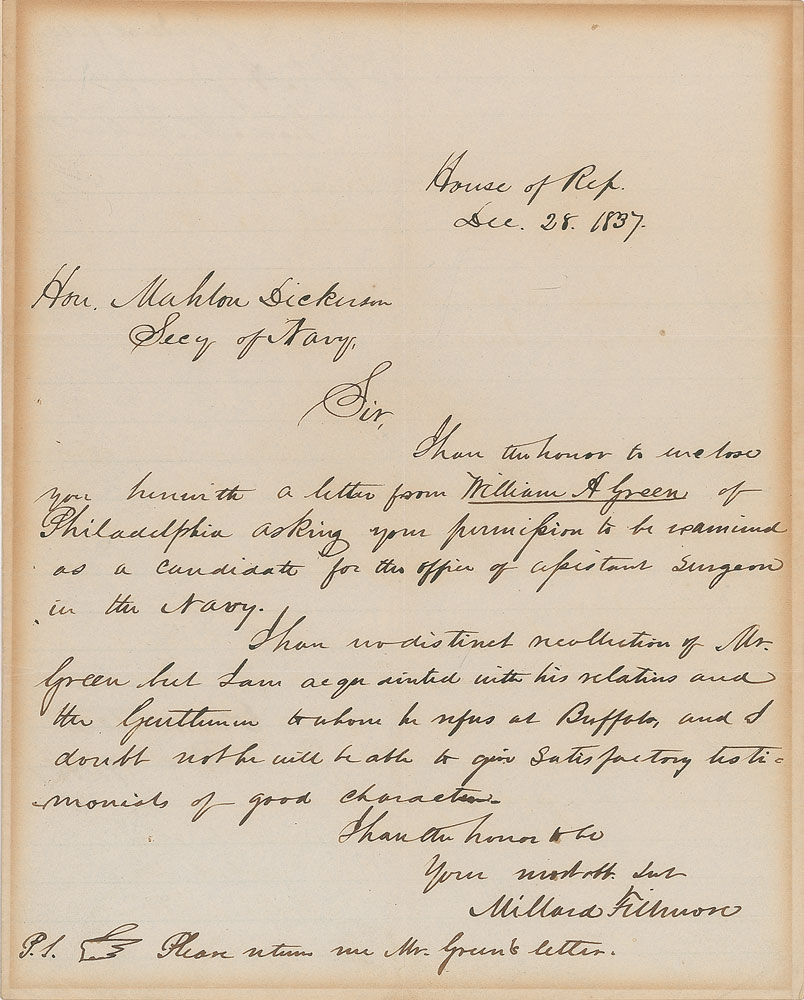 House of Rep.
Dec. 28. 1837.
Hon. Mahlon Dickerson
Secy of Navy,
Sir,
I have the honor to inclose
you herewith a letter from William A Green, of
Philadelphia asking your permission to be examined
as a candidate for the office of assistant Surgeon
in the Navy.
I have no distinct recollection of Mr.
Green but I am acquainted with his relatives and
the Gentlemen to whom he refers at Buffalo, and I
doubt not he will be able to give satisfactory testi=
monials of good character.
I have the honor to be
Your most obt. Svt
Millard Fillmore
P.S. Please return me Mr. Green's letter.